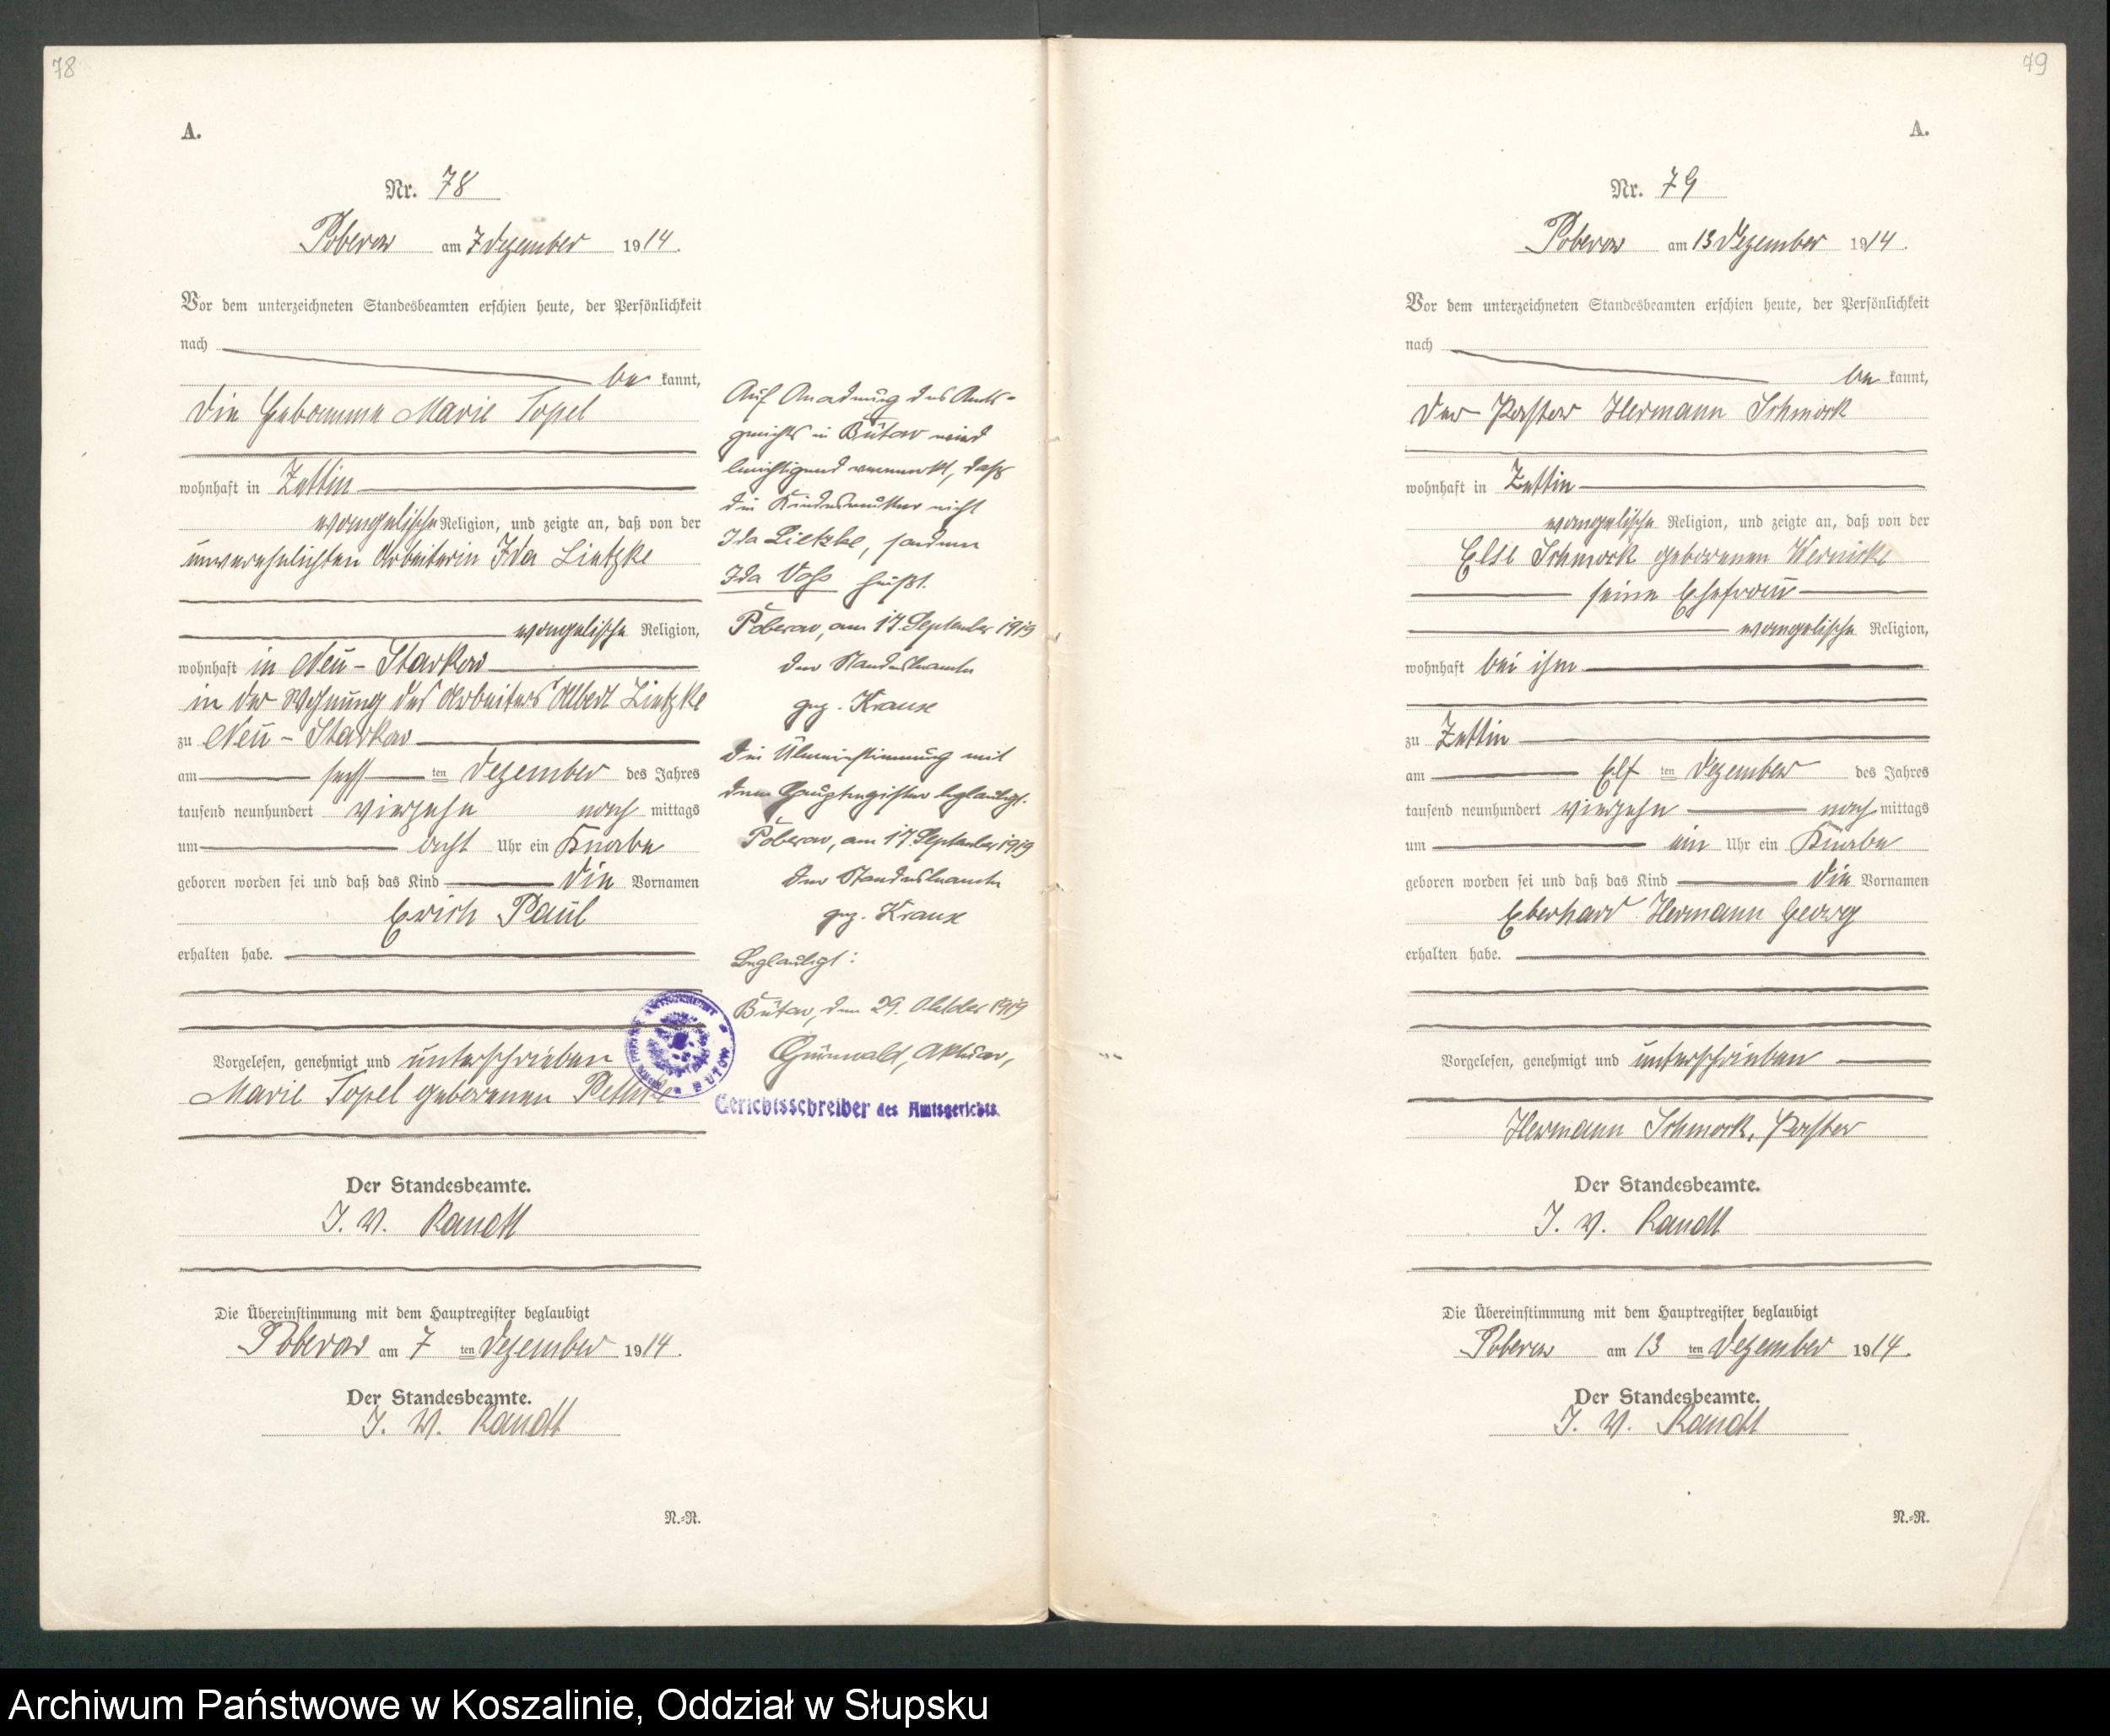 78
A.
Nr. 78
Poberow am 7 Dezember 1914.
Vor dem unterzeichneten Standesbeamten erschien heute, der Persönlichkeit
nach
be kannt,
die Hebamme Marie Topel
wohnhaft in Zettin
evangelischer Religion, und zeigte an, daß von der
unverehelichten Arbeiterin Ida Lietzke
evangelische Religion,
wohnhaft in Neu-Starkow
in der Wohnung des Arbeiters Albert Lietzke
zu Neu-Starkow
am sechsten Dezember des Jahres
tausend neunhundert vierzehn nach mittags
um acht Uhr ein Knabe
geboren worden sei und daß das Kind die Vornamen
Erich Paul
erhalten habe.
Vorgelesen, genehmigt und unterschrieben
Marie Topel geborenen
Der Standesbeamte.
J. V. Randt
Die Übereinstimmung mit dem Hauptregister beglaubigt
Poberow am 7 ten Dezember 1914.
Der Standesbeamte.
J. V. Randt
N.=N.
Auf Anordnung des Amts-
gerichts in Bütow wird
berichtigend vermerkt, daß
die Kindesmutter nicht
Ida Lietzke, sondern
Ida Voß heißt.
Poberow, am 17. September 1919
Der Standesbeamte
gez. Krause
Die Übereinstimmung mit
dem Hauptregister beglaubigt.
Poberow, am 17. September 1919
Der Standesbeamte
gez. Krause
Beglaubigt:
Bütow, den 29. Oktober 1919
Grünwald, Aktuar,
Gerichtsschreiber des Amtsgerichts.
79
A.
Nr. 79
Poberow am 13 Dezember 1914.
Vor dem unterzeichneten Standesbeamten erschien heute, der Persönlichkeit
nach
be kannt,
der Pastor Hermann Schmock
wohnhaft in Zettin
evangelische Religion, und zeigte an, daß von der
Else Schmock geborenen Wernicke
seine Ehefrau
evangelische Religion,
wohnhaft bei ihm
zu Zettin
am Elf ten Dezember des Jahres
tausend neunhundert vierzehn nach mittags
um ein Uhr ein Knabe
geboren worden sei und daß das Kind die Vornamen
Eberhard Hermann Georg
erhalten habe.
Vorgelesen, genehmigt und unterschrieben
Hermann Schmock, Pastor
Der Standesbeamte.
J. V. Randt
Die Übereinstimmung mit dem Hauptregister beglaubigt
Poberow am 13 ten Dezember 1914.
Der Standesbeamte.
J. V. Randt
N.=N.
Archiwum Państwowe w Koszalinie, Oddział w Słupsku